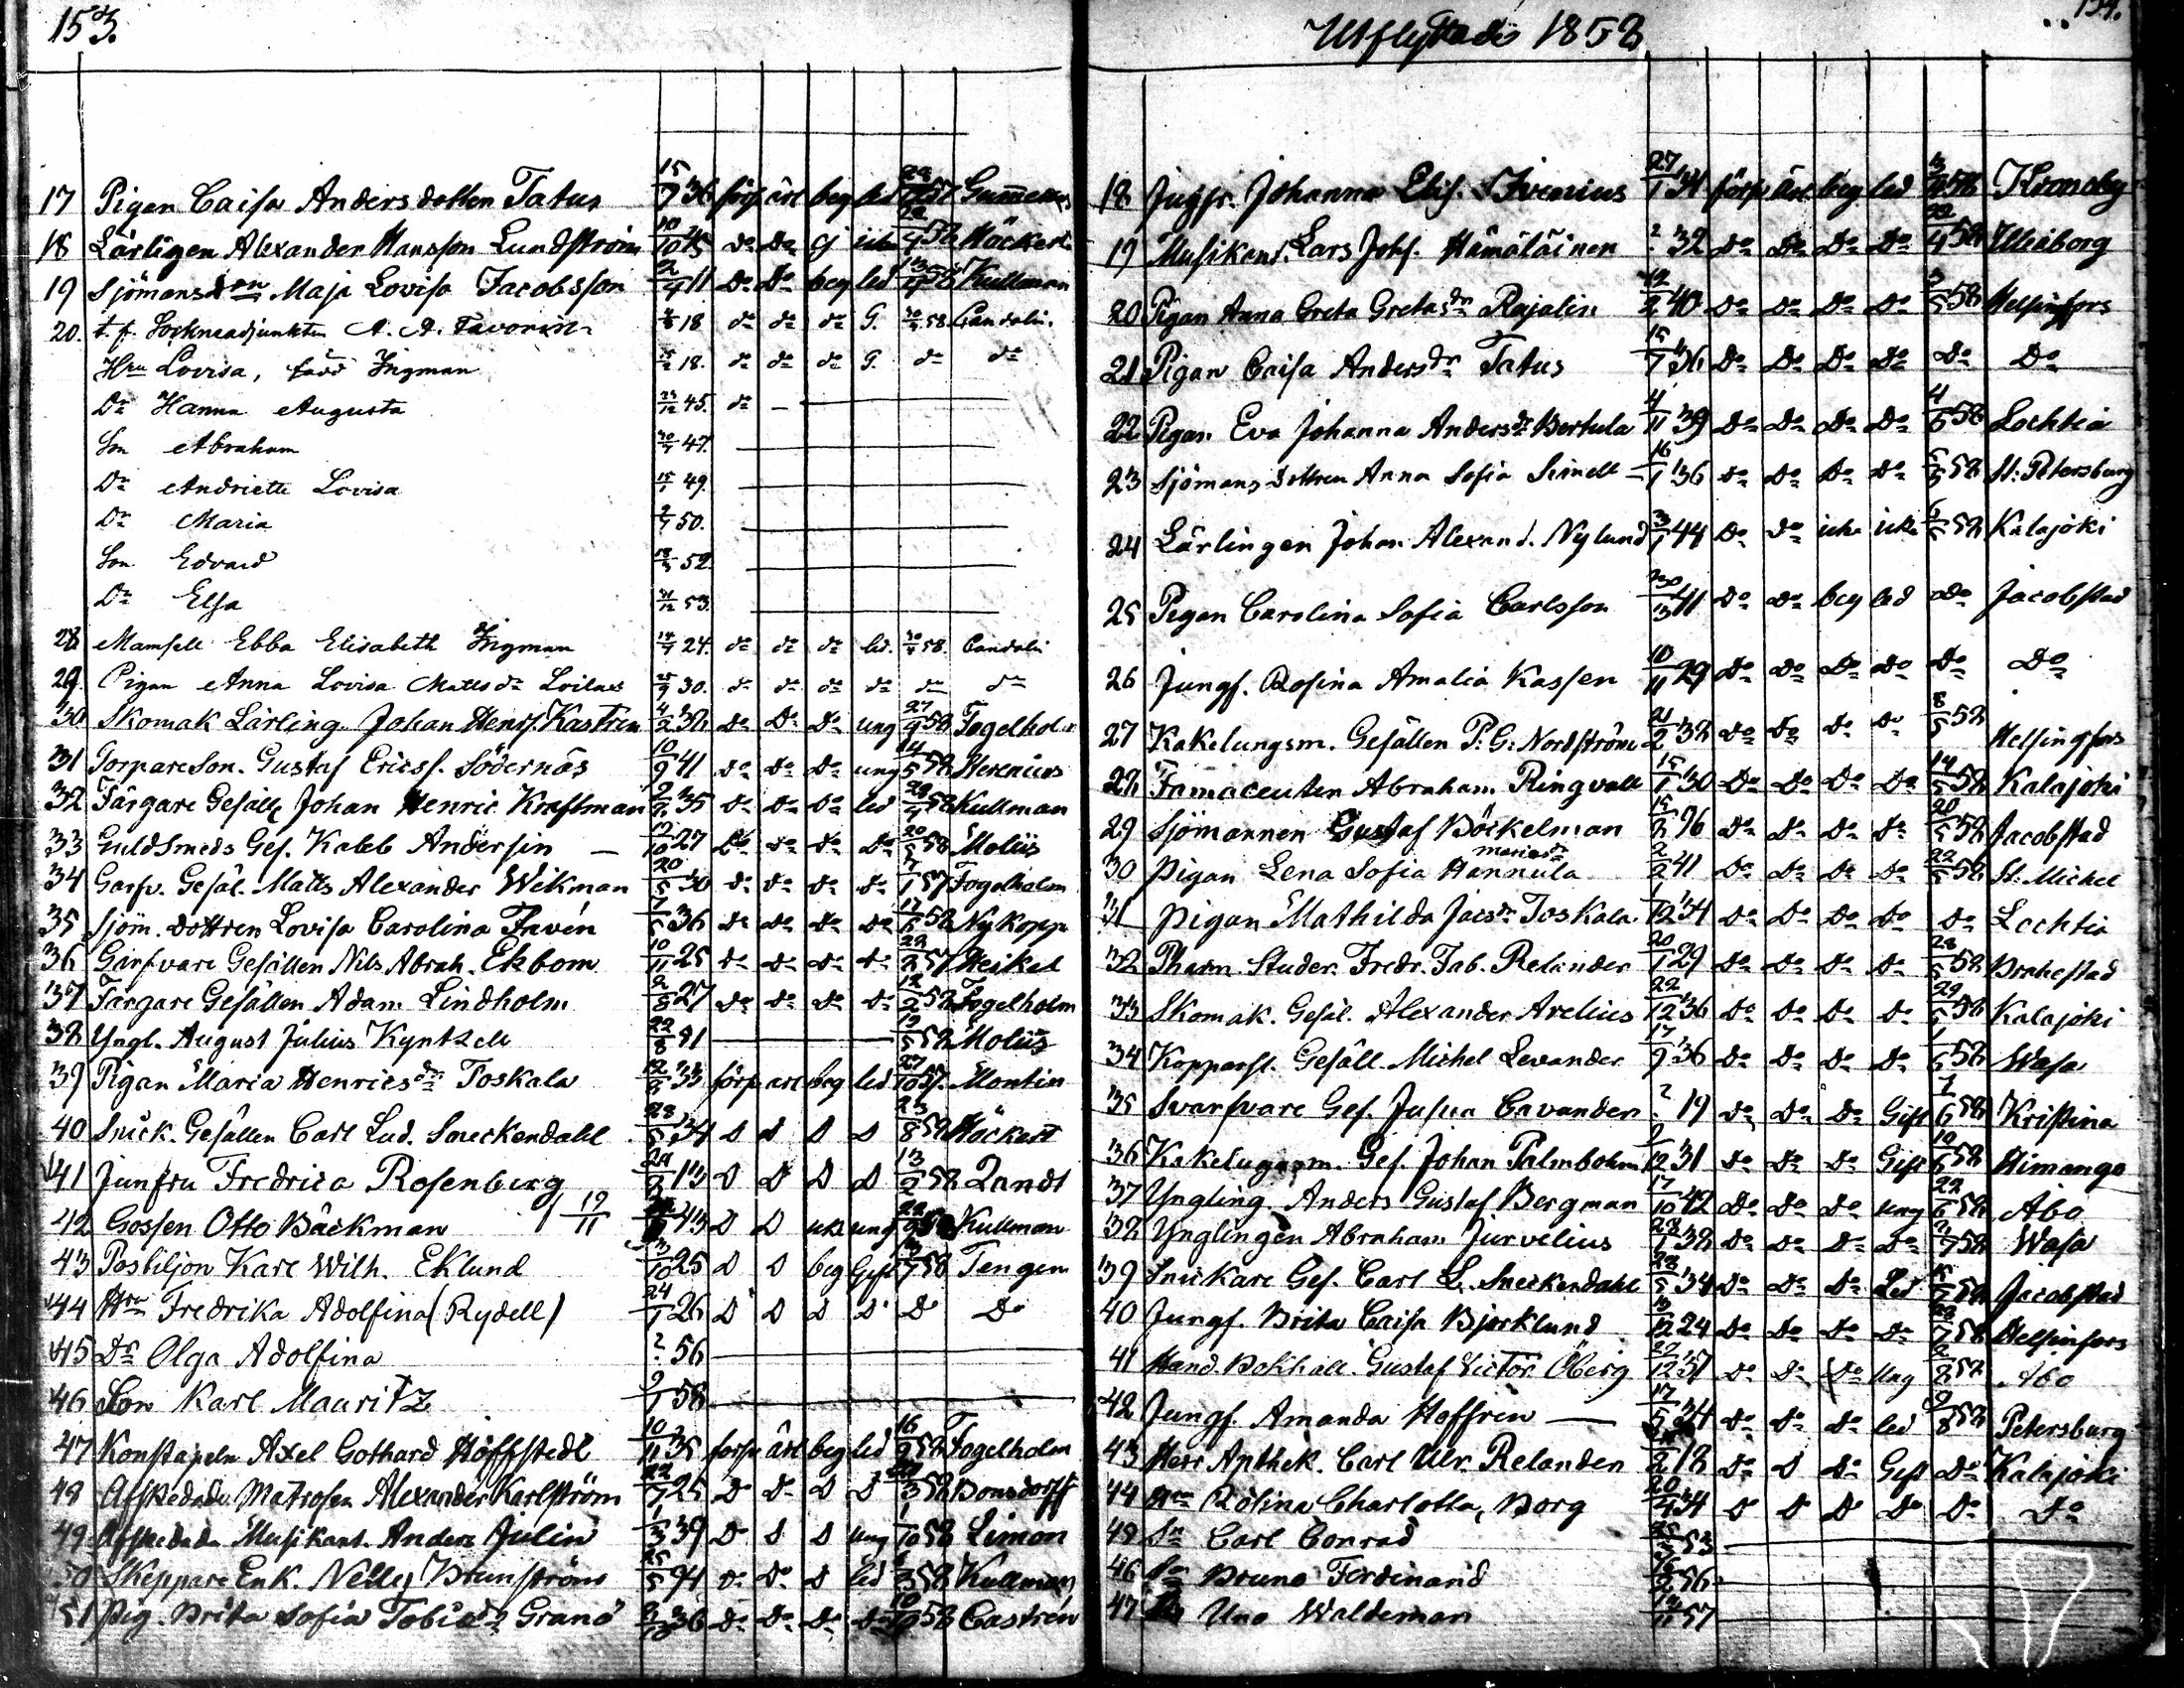 153.
17 Pigan Caisa Andersdotter Tatus 15/7 36 förp ärl beg led 57 Gummerus
18 Lärligen Alexander Hansson Lundström 10/10 45 Do Do ej 58 Höckert
19 Sjömansdon Maja Lovisa Jacobsson 2/4 11 Do Do beg led 58 Kullman
20. t. f. Sockneadjunkten A. A. Favorin 18 do do do G. 30/4 58 Candelin.
Hru Lovisa, född Ingman 18. do do do G. do do
Dr Hanna Augusta 45. do —
Son Abraham 47.
Dr Andriette Lovisa 49.
Dr Maria 50.
Son Edvard 52
Dr Elsa 31/12 53.
28 Mamsell Ebba Elisabeth Ingman 24. do do do led. 58. Candelin
29. Pigan Anna Lovisa Matts dr Loilax 25/9 30. do do do do do do
30 Skomak Lärling Johan Henrs. Kastren 4/2 38 Do Do Do ung 27/9 58 Fogelholm
31 Torpare Son. Gustaf Ericss. Södernäs 10/9 41 do do do ung 14/5 58 Herenius
32 Färgare Gesäll Johan Henric Kraftman 35 Do Do Do led 58 Kullman
33 Guldsmeds Ges. Kaleb Andersin — 12/10 27 Do Do Do Do 58 Moliis
34 Garfv. Gesäl. Matts Alexander Wikman 20/5 30 Do Do Do Do 57 Fogelholm
35 Sjöm. dottren Lovisa Carolina Fravén 36 Do Do Do Do 58 Nykopp
36 Garfvare Gesällen Nils Abrah. Ekbom 10/11 25 Do Do Do Do 57 Heikel
37 Färgare Gesällen Adam Lindholm 2/8 27 Do Do Do Do 12/2 58 Fogelholm
38 Yngl. August Julius Kyntzell 22/8 41 58 Moliis
39 Pigan Maria Henricsdr Toskala 33 förp arl beg led 27/10 57. Montin
40 Snick. Gesällen Carl Lud. Sneckendahl 28/5 34 D D D D 23/8 58 Höckert
41 Junfru Fredrica Rosenberg 13 D D D D 13/2 58 Zandt
42 Gossen Otto Bäckman 19/11 43 D D ung 58 Kullman
43 Postiljon Karl Wilh. Eklund 3/10 25 D D beg Gift 58 Tengen
44 Hru Fredrika Adolfina (Rydell) 24/1 26 D D D D Do Do
45 Dr Olga Adolfina ? 56
46 Son Karl Mauritz 9/1 58
47 Konstapeln Axel Gothard Hoffstedt 10/11 35 forp ärl beg led 16/9 58 Fogelholm
48 Afskedade Matrosen Alexander Karlström 22/7 25 D D D D 58 Bonsdorff
49 Afskedada Musikant. Anders Julin 1/3 39 D D D ung 1/10 58 Limon
50 Skeppare Enk. Nelly Brunström 25/5 94 Do Do D led 58 Kullman
51 Pig. Brita Sofia Tobiasdr Granö 36 Do Do Do Do 58 Castrén
Utflyttade 1858
154.
18 Jugfr. Johanna Elis. 27/1 34 förp ärl. beg led 58 Kroneby
19 Musikant. Lars Johs. Hämäläinen ? 32 Do Do Do Do 22/4 58 Uleåborg
20 Pigan Anna Greta Gretasdr Rajalin 12/2 40 Do Do Do Do 3/5 58 Helsingfors
21 Pigan Caisa Andersdr Tatus 15/7 36 Do Do Do Do Do Do
22 Pigan Eva Johanna Andersdr Bertula 4/11 39 Do Do Do Do 4/5 58 Lochtia
23 Sjömans dottren Anna Sofia Simell — 16/1 36 Do Do Do Do 5/5 58 St: Petersburg
24 Lärlingen Johan Alexand. Nylund 3/1 44 Do do icke icke 58 Kalajoki
25 Pigan Carolina Sofia Carlsson 41 Do Do beg led do Jacobstad
26 Jungf. Rosina Amalia Kassen 10/11 29 Do Do Do Do Do Do
27 Kakelungsm. Gesällen P: G: Nordström 21/2 32 Do Do Do Do 8/5 58 Helsingfors
28 Famaceuten Abraham Ringvall 15/1 30 Do Do Do Do 14/5 58 Kalajoki
29 Sjömannen Gustaf Böckelman 96 Do Do Do Do 20/5 58 Jacobstad
30 Pigan Lena Sofia Mariasdr Hannula 41 Do Do Do Do 22/5 58 St. Michel
31 Pigan Mathilda Jacsdr Toskala 1/12 34 Do Do Do Do Do Lochtia
32 Pharm. Studer. Fredr. Fab. Relander 20/1 29 Do Do Do Do 28/5 58 Brahestad
33 Skomak. Gesäl. Alexander Arelius 22/12 36 Do Do Do Do 29/5 58 Kalajoki
34 Kopparsl. Gesäll Michel Levander 17/9 36 Do Do Do Do 1/6 58 Wasa
35 Svarfvare Ges. Josua Cavander ? 19 Do Do Do Gift 7/6 58 Kristina
36 Kakelugnsm. Ges. Johan Palmbohm 9/12 31 Do Do Do Gift 10/6 58 Himango
37 Yngling Anders Gustaf Bergman 17/10 42 Do Do Do ung 22/6 58 Åbo
38 Ynglingen Abraham Jurvelius 28/1 38 Do Do Do Do 2/7 58 Wasa
39 Snickare Ges. Carl L. Sneckendahl 28/5 34 Do Do Do Led 58 Jacobstad
40 Jungf. Brita Caisa Bjorklund 24 Do Do Do Do 58 Helsinfors
41 Hand. Bokhåll. Gustaf Victor Öberg 27/12 37 Do Do Do Ung 2/8 58 Åbo
42 Jungf. Amanda Hoffrén — 17/5 34 Do Do Do led 9/8 58 Petersburg
43 Herr Apthek. Carl Ulr. Relander 18 Do D Do Gift Do Kalajoki
44 Hru Rolina Charlotta, Borg 20/4 34 D D D Do Do Do
45 Sn Carl Conrad 53
46 Sn Bruno Ferdinand 56
47 Uno Waldeman 57